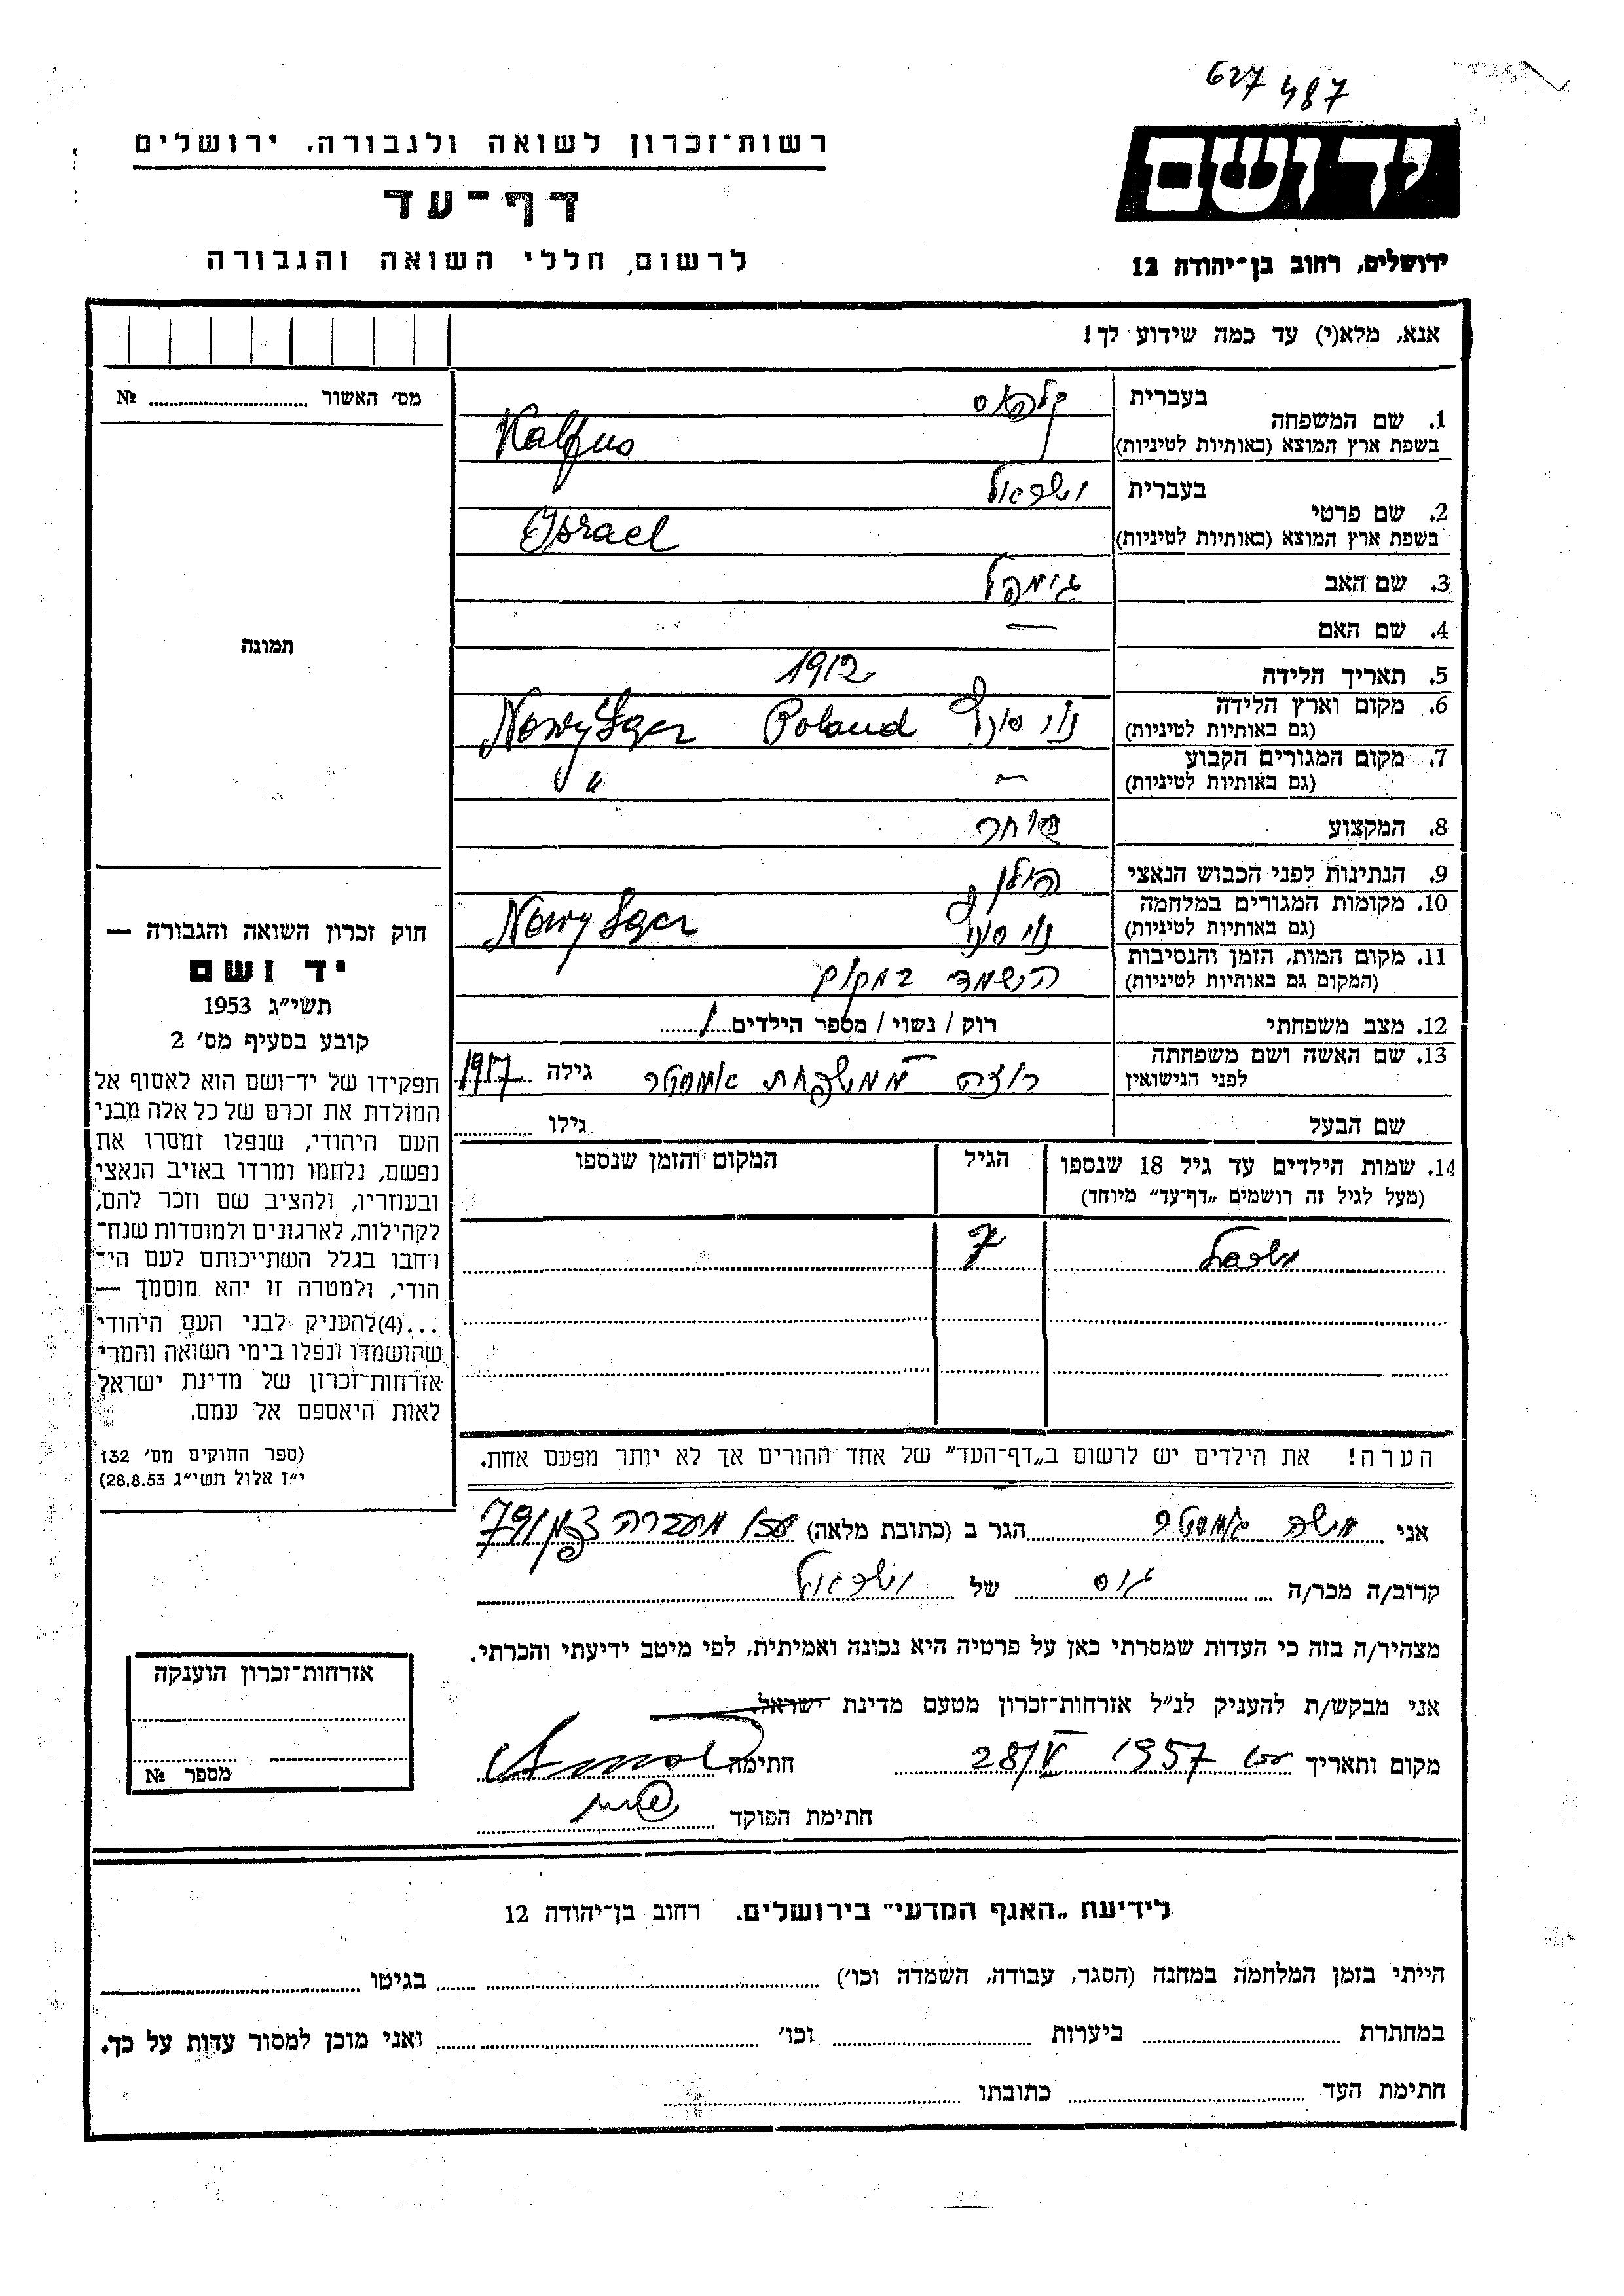 627 487
ידושם
רשות־זכרון לשואה ולגבורה, ירושלים
דף־עד
לרשום חללי השואה והגבורה
ירושלים, רחוב בן־יהודה 12
אנא, מלא(י) עד כמה שידוע לך!
מס׳ האשור № 
1. שם המשפחה
בעברית קלפוס
בשפת ארץ המוצא (באותיות לטיניות) Kalfus
2. שם פרטי
בעברית ישראל
בשפת ארץ המוצא (באותיות לטיניות) Israel
3. שם האב גימפל
4. שם האם —
5. תאריך הלידה 1912
6. מקום וארץ הלידה
(גם באותיות לטיניות) נוי סונץ Poland Nowy Sącz
7. מקום המגורים הקבוע
(גם באותיות לטיניות) — "
8. המקצוע סוחר
9. הנתינות לפני הכבוש הנאצי פולן
10. מקומות המגורים במלחמה
(גם באותיות לטיניות) נוי סונץ Nowy Sącz
11. מקום המות, הזמן והנסיבות
(המקום גם באותיות לטיניות) השמד במקום
12. מצב משפחתי רוק / נשוי / מספר הילדים 1
13. שם האשה ושם משפחתה
לפני הנישואין רוזה ממשפחת אמסטר גילה 1917
שם הבעל גילו
14. שמות הילדים עד גיל 18 שנספו
(מעל לגיל זה רושמים „דף־עד” מיוחד)
הגיל
המקום והזמן שנספו
7
הערה! את הילדים יש לרשום ב„דף־העד” של אחד ההורים אך לא יותר מפעם אחת.
תמונה
חוק זכרון השואה והגבורה —
יד ושם
תשי״ג 1953
קובע בסעיף מס׳ 2
תפקידו של יד־ושם הוא לאסוף אל
המולדת את זכרם של כל אלה מבני
העם היהודי, שנפלו ומסרו את
נפשם, נלחמו ומרדו באויב הנאצי
ובעוזריו, ולהציב שם וזכר להם,
לקהילות, לארגונים ולמוסדות שנח־
רחבו בגלל השתייכותם לעם הי־
הודי, ולמטרה זו יהא מוסמך —
...(4)להעניק לבני העם היהודי
שהושמדו ונפלו בימי השואה והמרי
אזרחות־זכרון של מדינת ישראל
לאות היאספם אל עמם.
(ספר החוקים מס׳ 132
י״ז אלול תשי״ג 28.8.53)
אני משה אמסטר הגר ב (כתובת מלאה) מעברה 79
קרוב/ה מכר/ה גיס של ישראל
מצהיר/ה בזה כי העדות שמסרתי כאן על פרטיה היא נכונה ואמיתית, לפי מיטב ידיעתי והכרתי.
אני מבקש/ת להעניק לנ״ל אזרחות־זכרון מטעם מדינת ישראל.
מקום ותאריך 28/V 1957 חתימה
חתימת הפוקד
אזרחות־זכרון הוענקה
מספר №
לידיעת „האגף המדעי” בירושלים. רחוב בן־יהודה 12
הייתי בזמן המלחמה במחנה (הסגר, עבודה, השמדה וכו׳) בגיטו
במחתרת ביערות וכו׳ ואני מוכן למסור עדות על כך.
חתימת העד כתובתו